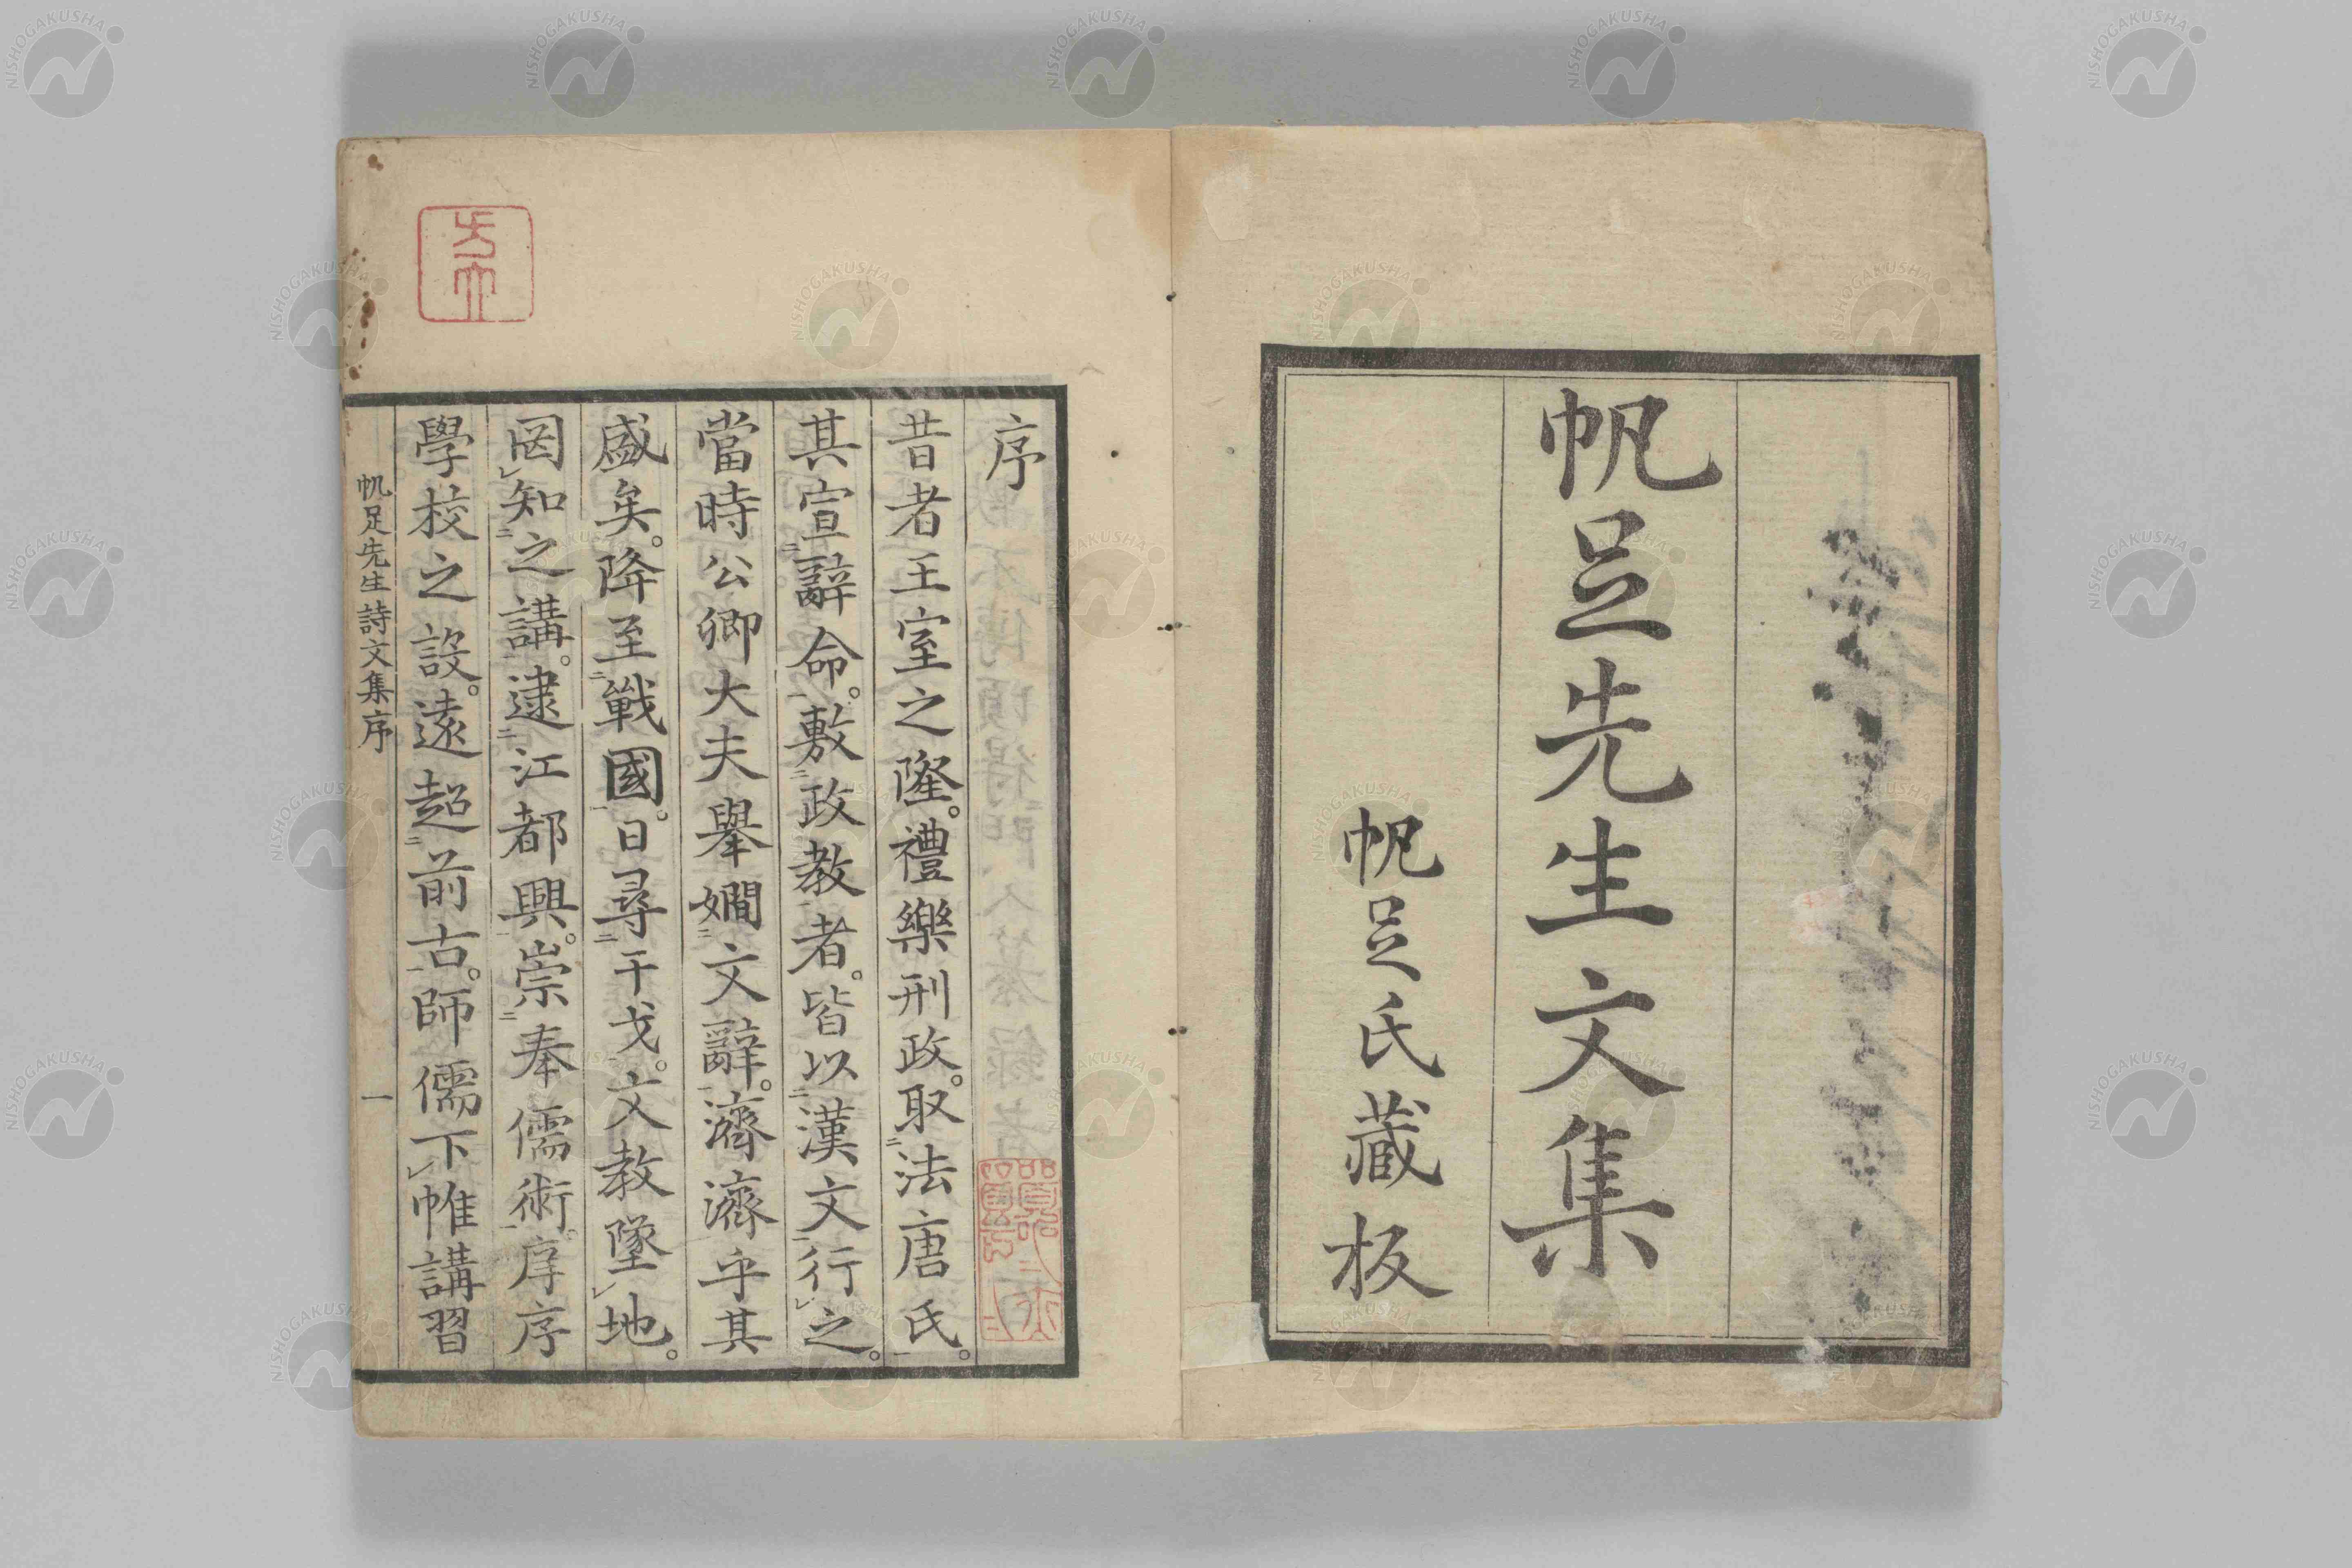 帆足先生文集
帆足氏藏板
序
昔者王室之隆。禮樂刑政。取二法唐氏一。
其宣二辭命一。敷二政教一者。皆以二漢文一行レ之。
當時公卿大夫舉嫺二文辭一。濟濟乎其
盛矣。降至二戰國一。日尋二干戈一。文教墜レ地。
罔レ知二之講一。逮二江都興一。崇二奉儒術一。庠序
學校之設。遠超二前古一。師儒下レ帷講習
帆足先生詩文集序
一
NISHOGAKUSHA